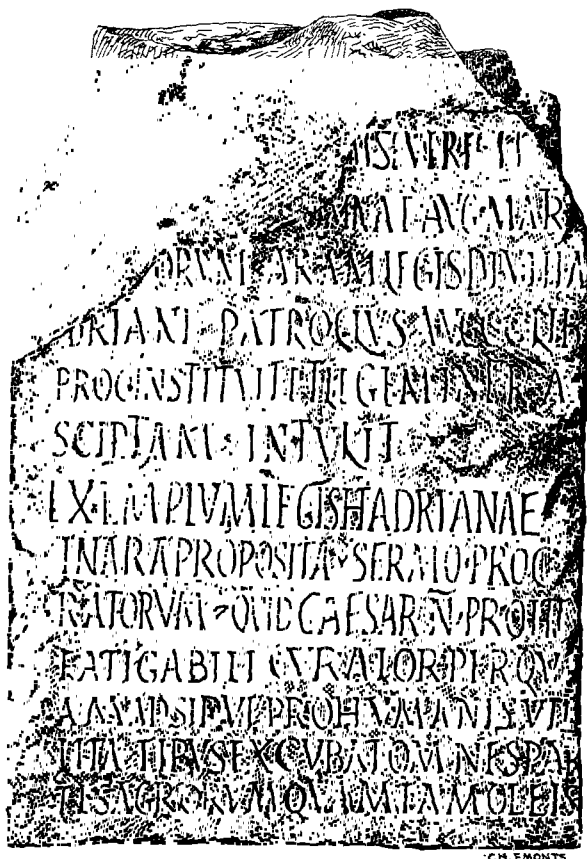 SEVERI
MNAE AVG MAR
ORVM ARAM LEGIS DIVI HA
DRIANI PATROCLVS AVGGG LIB
PROC INSTITVIT ET LEGEM INFRA
SCIPTAM INTVLIT
EXEMPLVM LEGIS HADRIANAE
IN ARA PROPOSITA SERMO PROC
RATORVM QVID CAESAR N PRO INI
FATIGABILI CVRA IOR PER QV
ADSIDVE PRO HVMANIS VTIL
TITATIBVS EXCVBAT OMNES PAR
TIS AGRORVM QVAM TAM OLEIS
CH. EMONTS